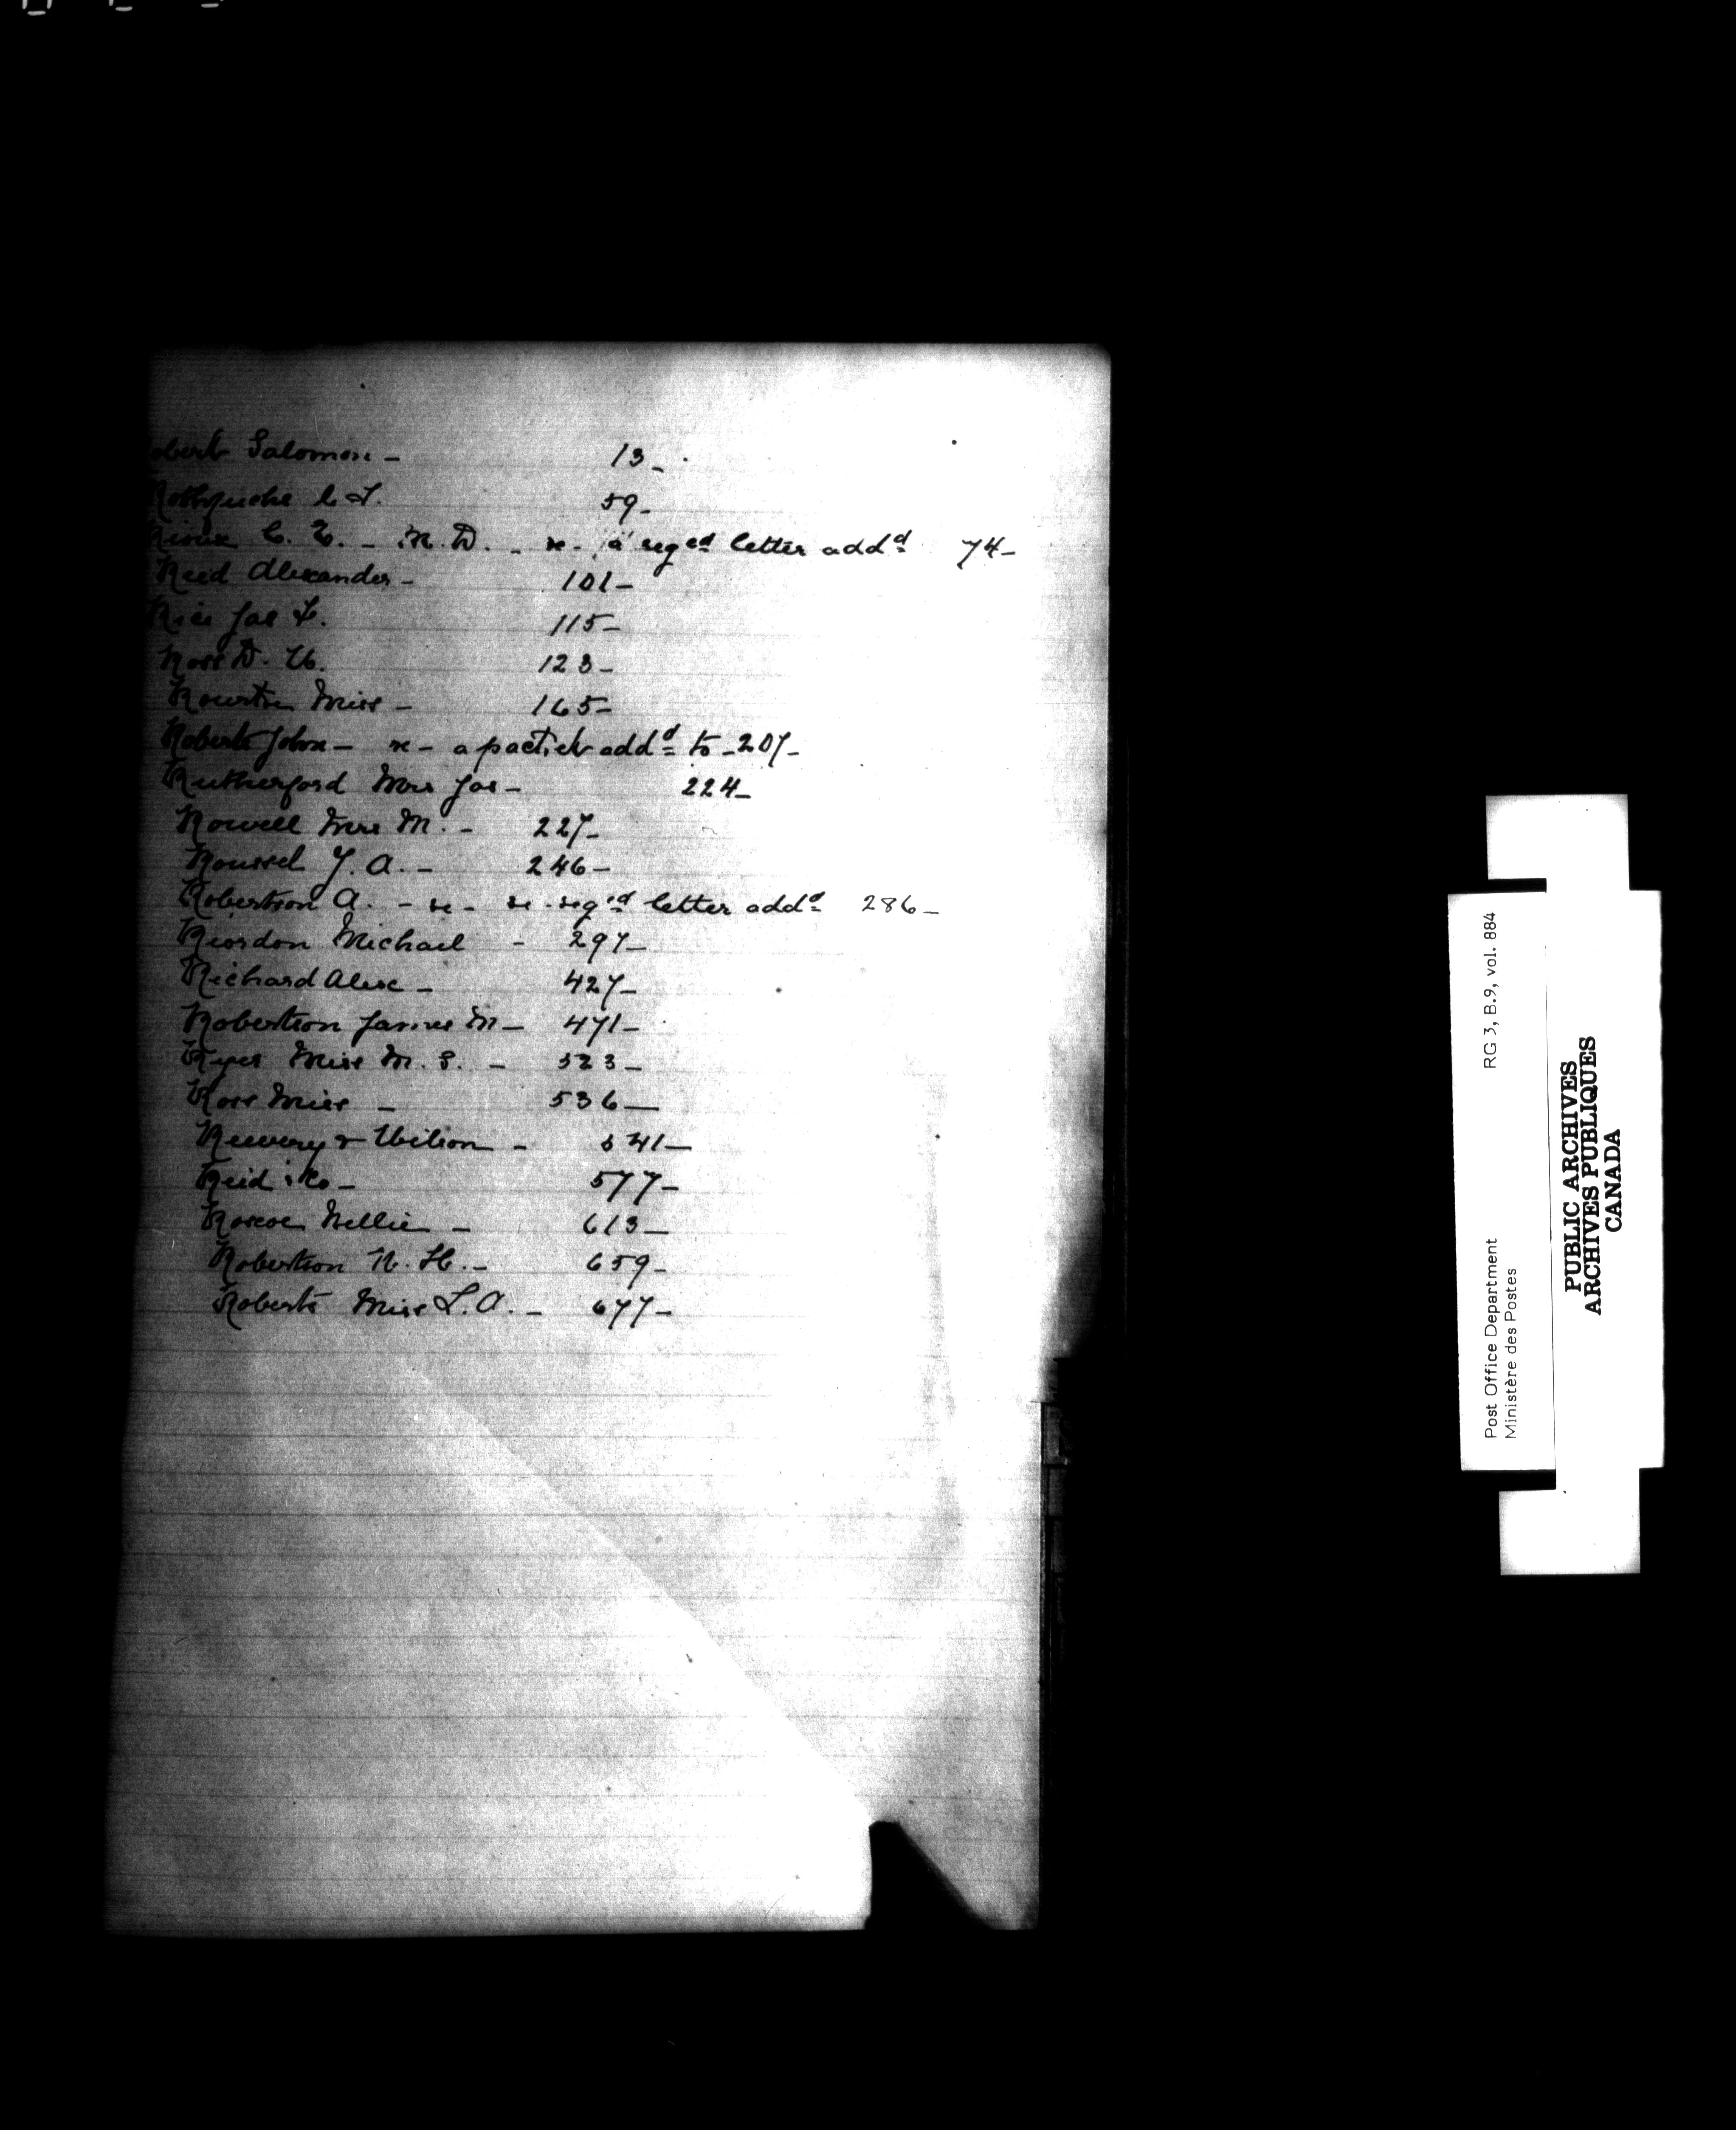 obert Salomon – 13 –
C. F. 59 –
Rioux C. E. – M.D. – re – a reg^ed letter add^d 74 –
Reid Alexander – 101 –
Rice Jas F. 115 –
Ross D. W. 123 –
Miss – 165 –
Roberts John – re – a packet add^d to – 207 –
Rutherford Mrs Jas – 224 –
Rowell Mrs M. – 227 –
Roussel J. A. – 246 –
Robertson A. – re – re – reg^ed letter add^d 286 –
Riordon Michael – 297 –
Richard Alex – 427 –
Robertson James M – 471 –
Ryer Miss M. S. – 523 –
Ross Miss – 536 –
Wilson – 541 –
Reid & Co – 577 –
Roscoe Nellie – 613 –
Robertson W. H. – 659 –
Roberts Miss L. A. – 677 –
Post Office Department RG 3, B.9, vol. 884
Ministère des Postes
PUBLIC ARCHIVES
ARCHIVES PUBLIQUES
CANADA